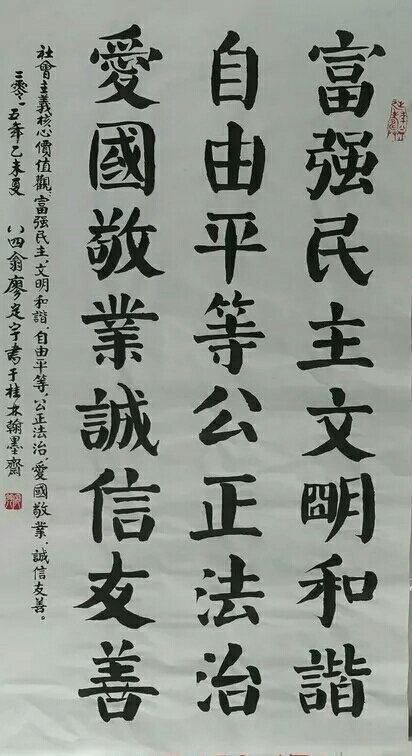 富强民主文明和諧
自由平等公正法治
愛國敬業誠信友善
社會主義核心價值觀：富强民主、文明和諧、自由平等、公正法治、愛國敬業、誠信友善。
二零一五年乙未夏 八四翁廖定宇書于桂林翰墨齋